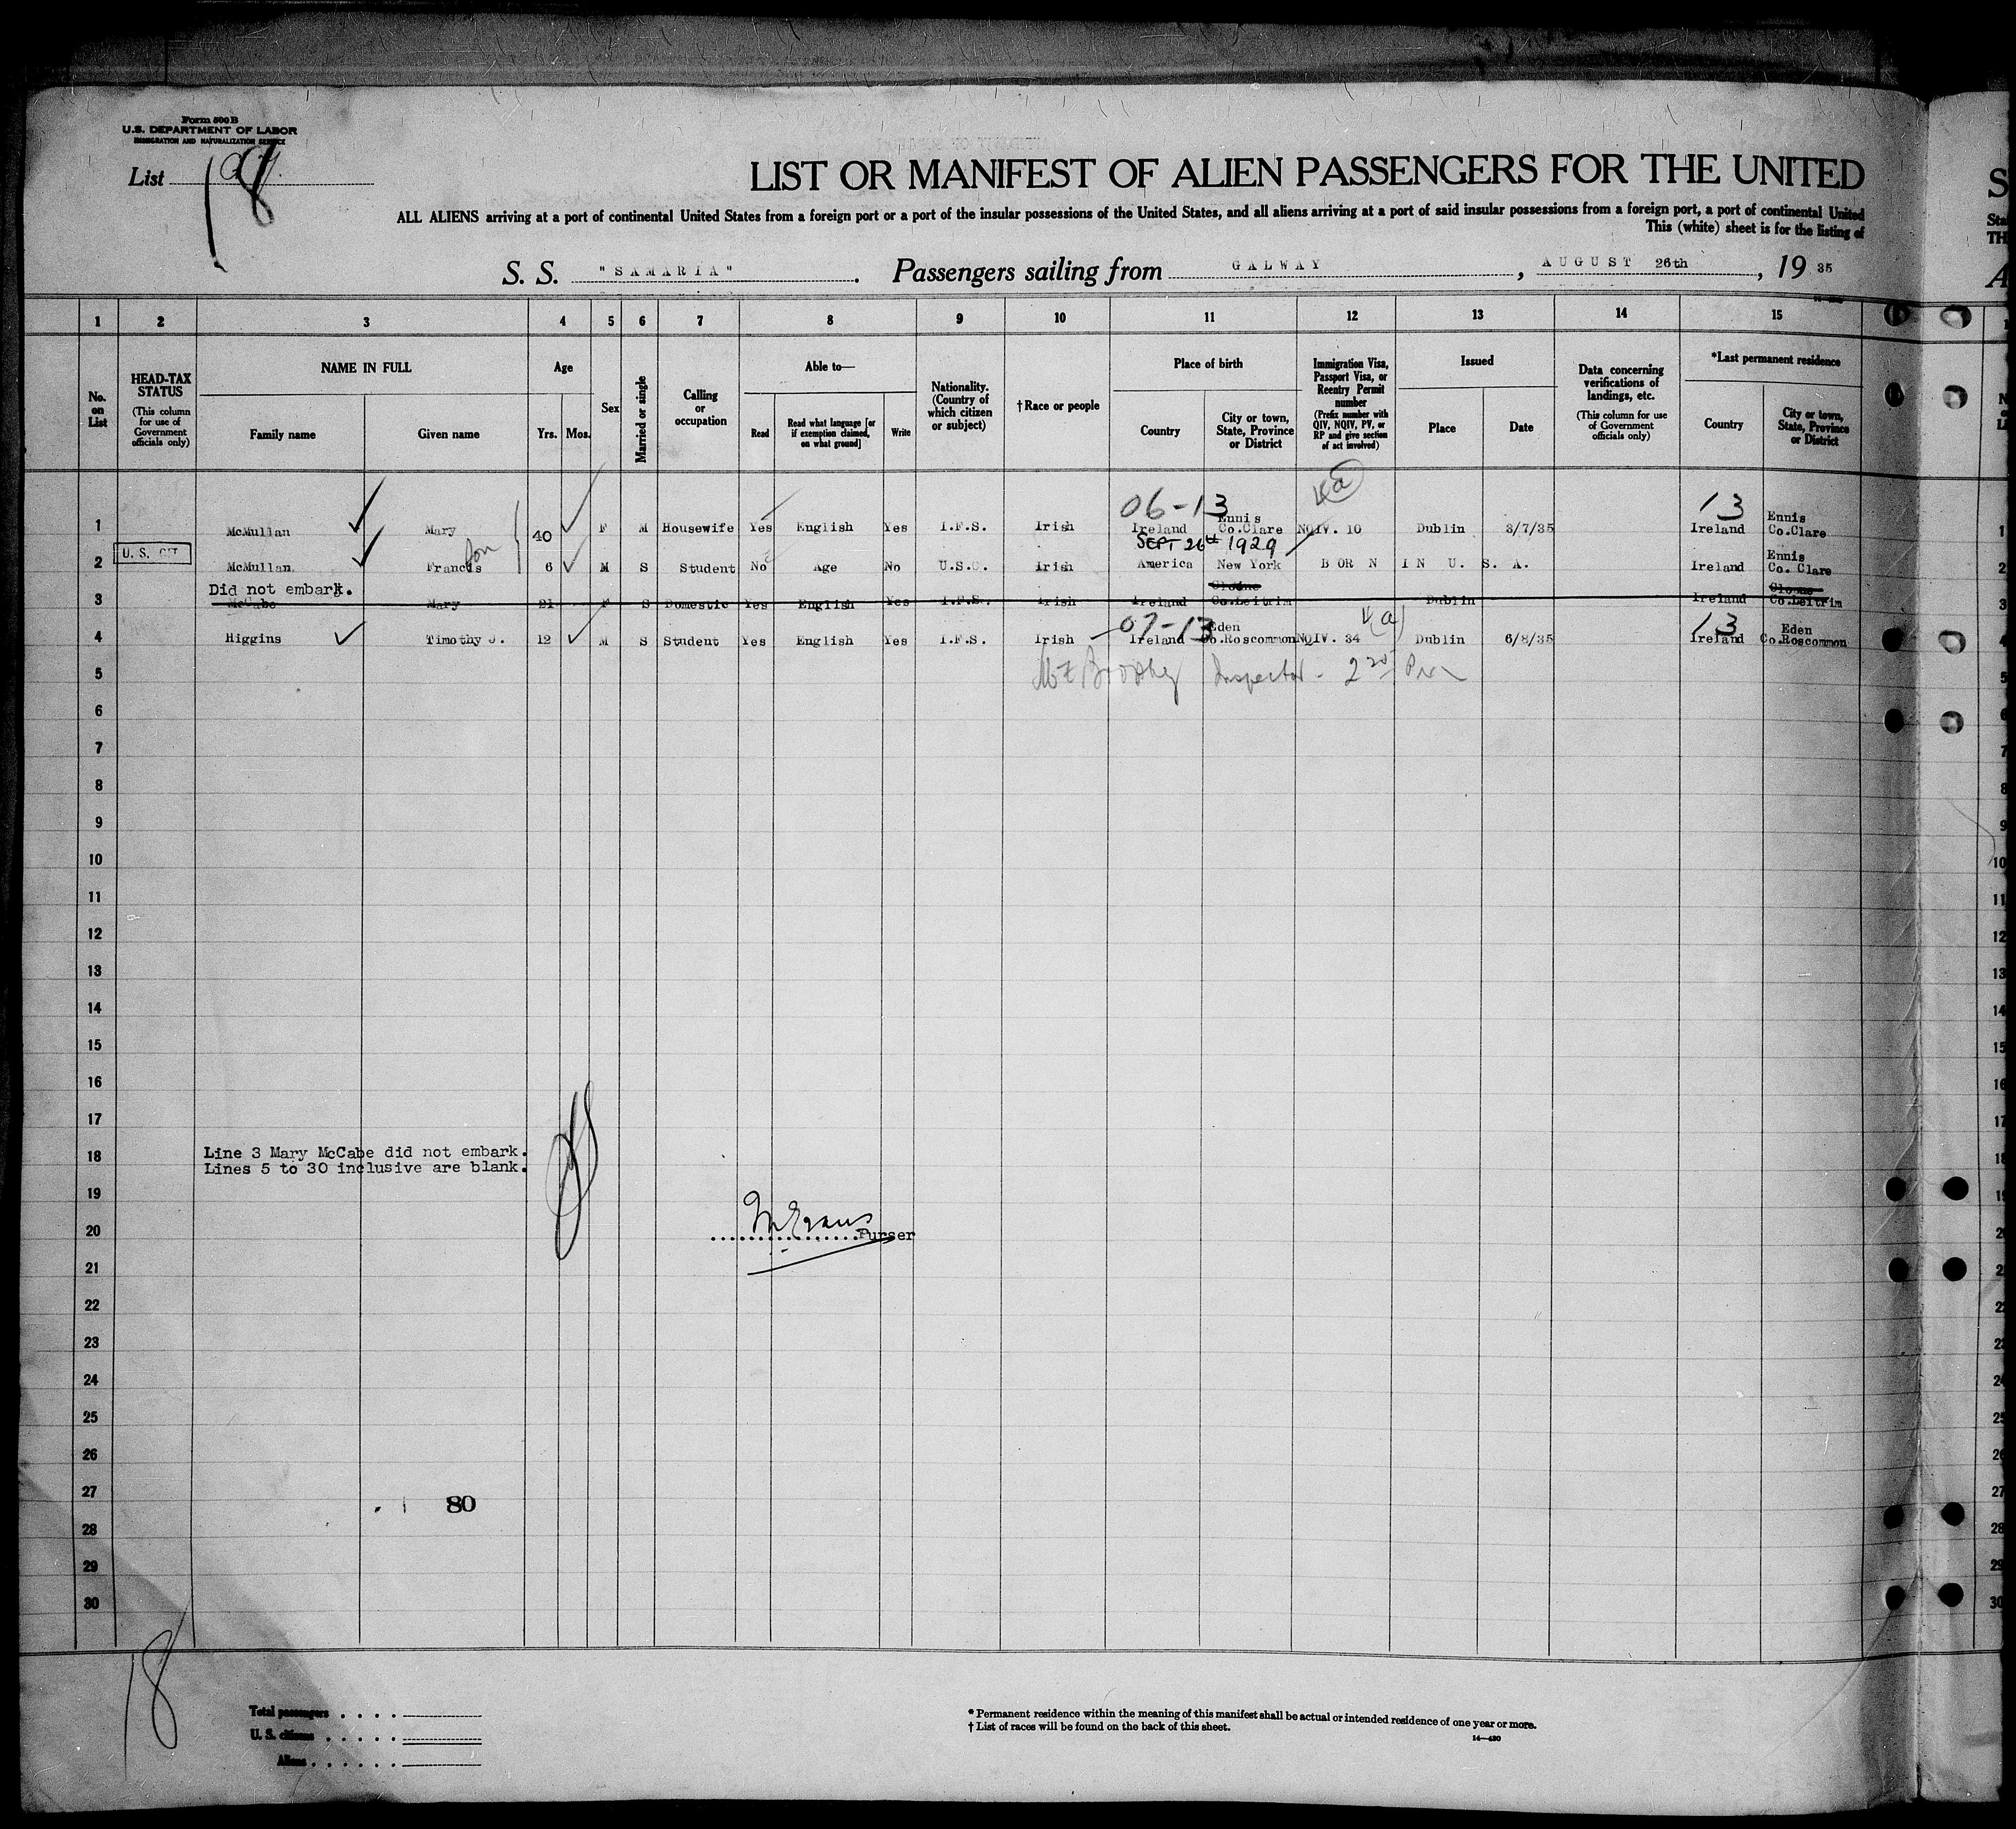 Form 500 B
U.S. DEPARTMENT OF LABOR
IMMIGRATION AND NATURALIZATION SERVICE
List 18
LIST OR MANIFEST OF ALIEN PASSENGERS FOR THE UNITED
ALL ALIENS arriving at a port of continental United States from a foreign port or a port of the insular possessions of the United States, and all aliens arriving at a port of said insular possessions from a foreign port, a port of continental United
This (white) sheet is for the listing of
S. S. "SAMARIA". Passengers sailing from GALWAY, AUGUST 26th, 19 35
1 2 3 4 5 6 7 8 9 10 11 12 13 14 15
No. on List
HEAD-TAX STATUS
(This column for use of Government officials only)
NAME IN FULL
Family name Given name
Age
Yrs. Mos.
Sex
Married or single
Calling or occupation
Able to—
Read
Read what language [or if exemption claimed, on what ground]
Write
Nationality. (Country of which citizen or subject)
†Race or people
Place of birth
Country
City or town, State, Province or District
Immigration Visa, Passport Visa, or Reentry Permit number
(Prefix number with QIV, NQIV, PV, or RP and give section of act involved)
Issued
Place Date
Data concerning verifications of landings, etc.
(This column for use of Government officials only)
*Last permanent residence
Country
City or town, State, Province or District
06-13 4(a) 13
1 McMullan Mary 40 F M Housewife Yes English Yes I.F.S. Irish Ireland Ennis Co.Clare NQIV. 10 Dublin 3/7/35 Ireland Ennis Co.Clare 1
son SEPT 26th 1929
2 U. S. CIT McMullan Francis 6 M S Student No Age No U.S.C. Irish America New York BORN IN U. S. A. Ireland Ennis Co. Clare 2
Did not embark.
3 McCabe Mary 21 F S Domestic Yes English Yes I.F.S. Irish Ireland Cloone Co.Leitrim Dublin Ireland Cloone Co.Leitrim 3
07-13 4(a) 13
4 Higgins Timothy J. 12 M S Student Yes English Yes I.F.S. Irish Ireland Eden Co.Roscommon NQIV. 34 Dublin 6/8/35 Ireland Eden Co.Roscommon
5 Inspector - 5
6
7 7
8 8
9 9
10 10
11 11
12 12
13 13
14 14
15 15
16 16
17 17
18 Line 3 Mary McCabe did not embark. 18
Lines 5 to 30 inclusive are blank.
19
20 Evans Purser
21
22
23
24
25
26
27 80 27
28 28
29 29
30 30
18
Total passengers
U. S. citizens
Aliens
* Permanent residence within the meaning of this manifest shall be actual or intended residence of one year or more.
† List of races will be found on the back of this sheet.
14—430